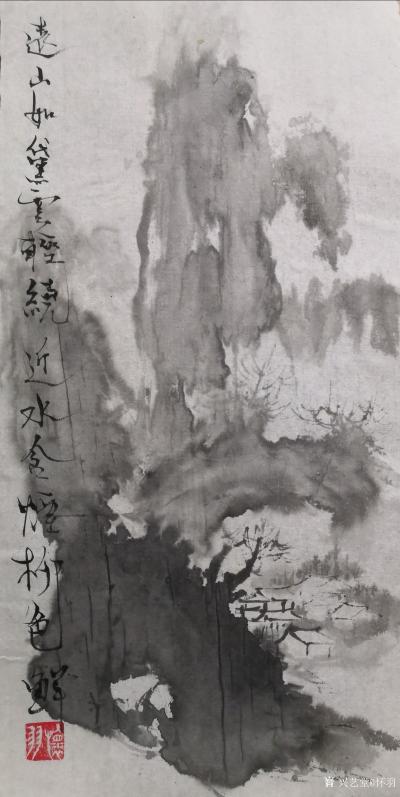 遠山如黛雲輕繞近水含煙柳色鮮
懷羽
兴艺堂@怀羽